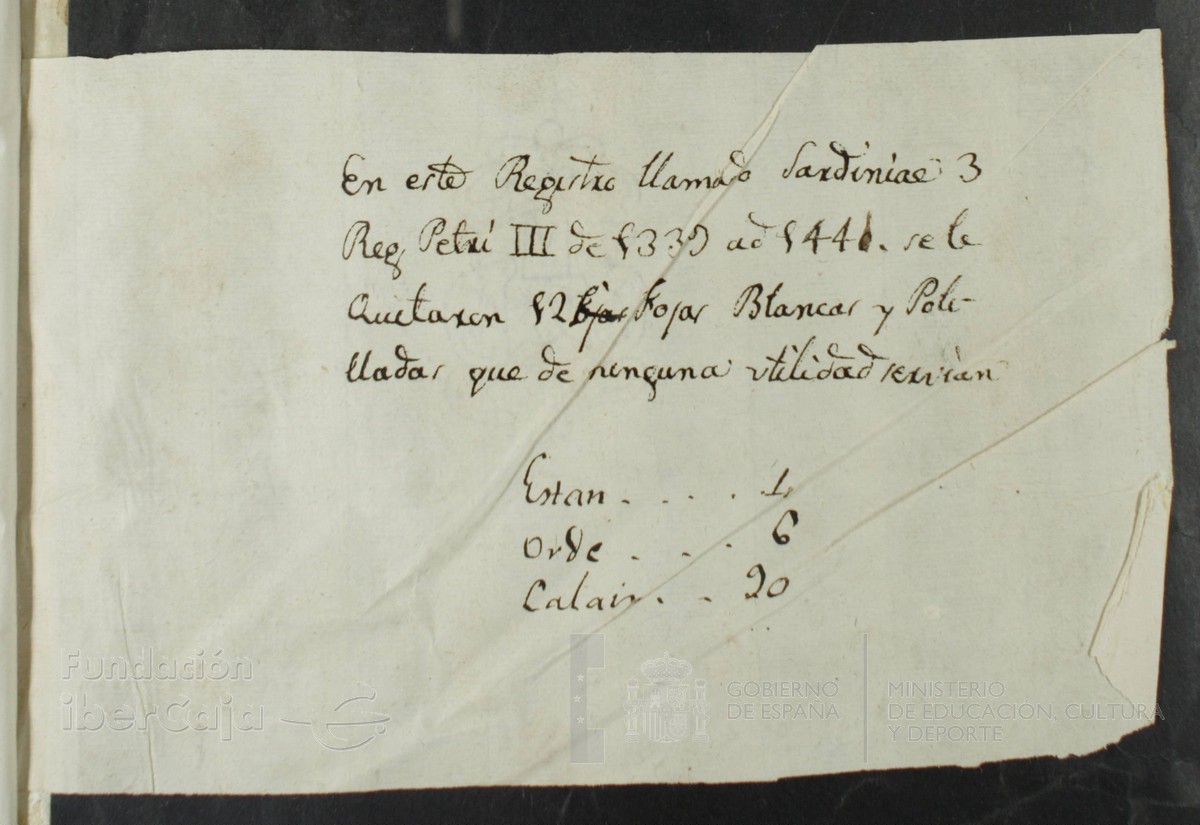 En este Registro llamado Sardiniae 3
Reg. Petri III de 1339 ad 1441. se le
Quitaron 12 fojas Fojas Blancas y Poli-
lladas que de ninguna utilidad servian
Estan . . . . 1,
Orde . . . 6
Calaix . . 20
Fundación
iberCaja
GOBIERNO
DE ESPAÑA
MINISTERIO
DE EDUCACIÓN, CULTURA
Y DEPORTE